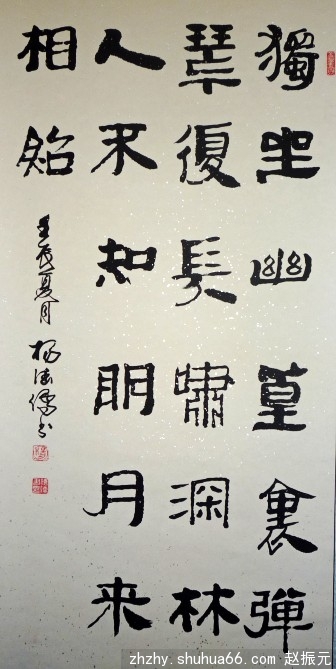 獨坐幽篁裏彈
琴復長嘯深林
人不知明月来
相炤
壬辰夏月 杨
zhzhy.shuhua66.com 赵振元